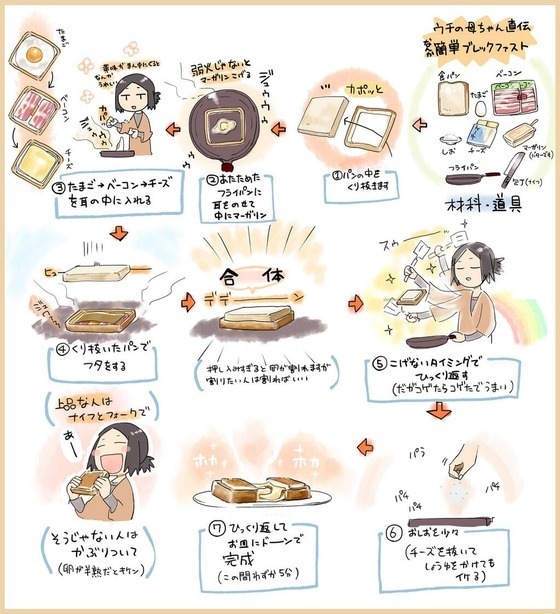 ウチの母ちゃん直伝
簡単ブレックファスト
食パン
たまご
ベーコン
しお
チーズ
マーガリン
フライパン
包丁(ナイフ)
材料・道具
カポッと
①パンの中を
くり抜きます
弱火じゃないと
マーガリンこげる
ジュウゥゥ
②あたためた
フライパンに
耳をのせて
中にマーガリン
黄味がまん中にくると
なんか
うれしい
たまご
ベーコン
チーズ
③たまご→ベーコン→チーズ
を耳の中に入れる
④くり抜いたパンで
フタをする
合体
デデーン
(押し込みすぎると卵が割れますが
割りたい人は割ればいい)
スゥ
⑤こげないタイミングで
ひっくり返す
(だがコゲたらコゲたでうまい)
パラ
パチ
パチ
パチ
⑥おしお少々
(チーズを抜いて
しょうゆをかけても
イケる)
ホカ
ホカ
⑦ひっくり返して
お皿にドーンで
完成
(この間わずか5分)
上品な人は
ナイフとフォークで
あー
そうじゃない人は
かぶりついて
(卵が半熟だとキケン)